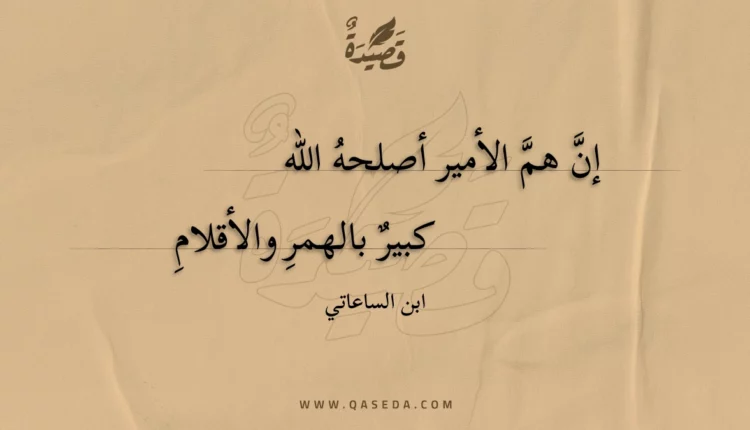 قَصِيدَةٌ
إنَّ همَّ الأمير أصلحهُ الله
كبيرٌ بالهمرِ والأقلامِ
ابن الساعاتي
WWW.QASEDA.COM